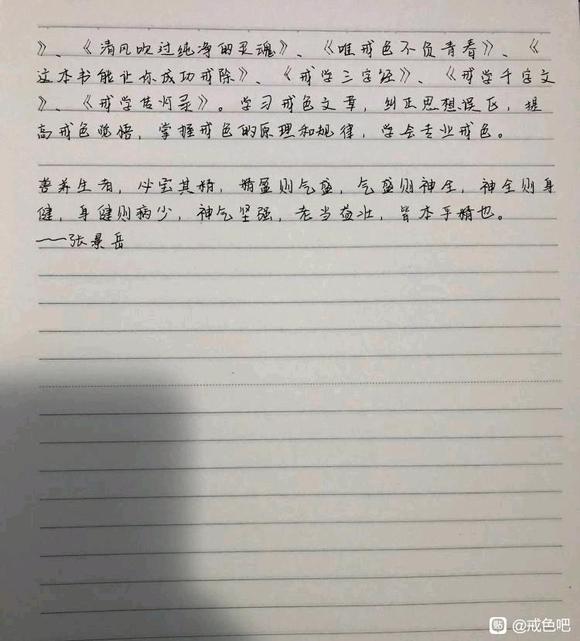 》、《清风吹过纯净的灵魂》、《唯戒色不负青春》、《
这本书能让你成功戒除》、《戒学三字经》、《戒学千字文
》、《戒学苦灯录》。学习戒色文章，纠正思想误区，提
高戒色觉悟，掌握戒色的原理和规律，学会专业戒色。
善养生者，必宝其精，精盈则气盛，气盛则神全，神全则身
健，身健则病少，神气坚强，老当益壮，皆本乎精也。
——张景岳
贴 @戒色吧